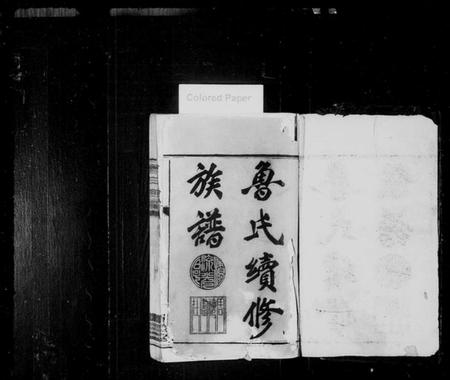 Colored Paper
魯氏續修
族譜